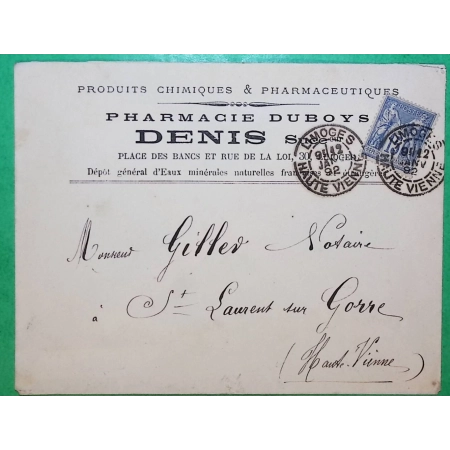 PRODUITS CHIMIQUES & PHARMACEUTIQUES
PHARMACIE DUBOYS
DENIS
PLACE DES BANCS ET RUE DE LA LOI, 30, LIMOGES
Dépôt général d'Eaux minérales naturelles françaises & étrangères
LIMOGES
12
JANV
92
HAUTE VIENNE
LIMOGES
12
JANV
92
HAUTE VIENNE
Monsieur Gilles Notaire
à St Laurent sur Gorre
(Haute-Vienne)